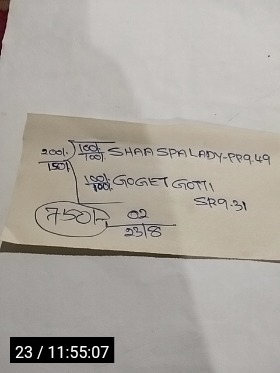 200/- 100/- SHAA SPALADY-PP9.49
150/- 100/-
100/- GOGET GOTTI
100/- SR9.31
750/- 02
23/8
23 / 11:55:07